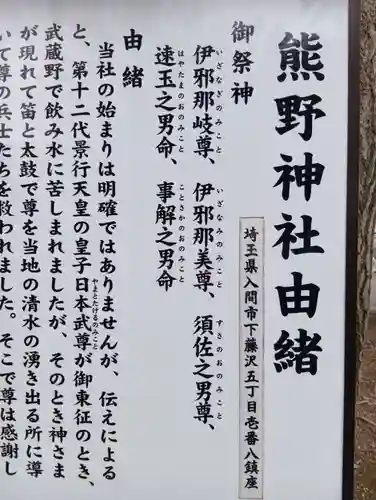 熊野神社由緒
埼玉県入間市下藤沢五丁目壱番八鎮座
御祭神
伊邪那岐尊、伊邪那美尊、須佐之男尊、
いざなぎのみこと いざなみのみこと すさのおのみこと
速玉之男命、事解之男命
はやたまのおのみこと ことさかのおのみこと
由緒
当社の始まりは明確ではありませんが、伝えによる
と、第十二代景行天皇の皇子日本武尊が御東征のとき、
やまとたけるのみこと
武蔵野で飲み水に苦しまれましたが、そのとき神さま
が現れて笛と太鼓で尊を当地の清水の湧き出る所に導
いて尊の兵士たちを救われました。そこで尊は感謝し